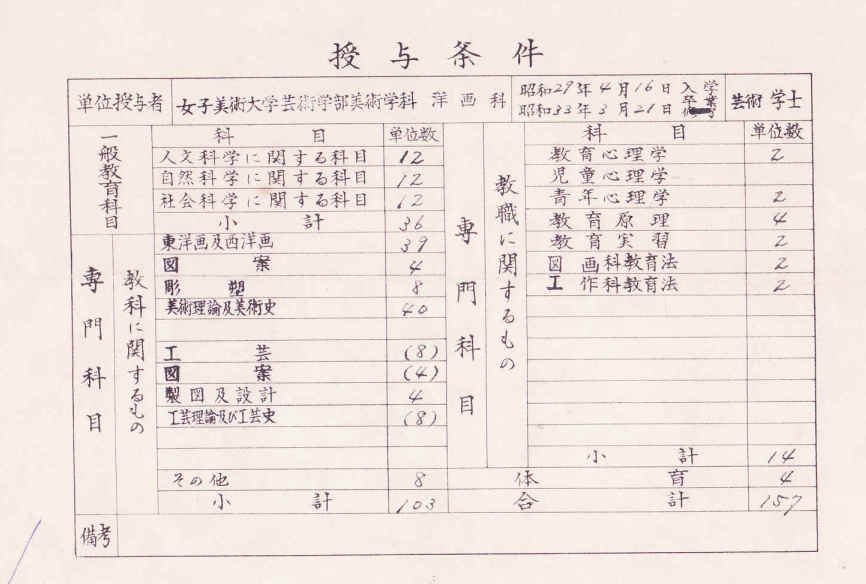 授与条件
単位授与者 女子美術大学芸術学部美術学科 洋画科 昭和29年4月16日 入学 芸術 学士
昭和33年3月21日 卒業
一般教育科目
科目 単位数
人文科学に関する科目 12
自然科学に関する科目 12
社会科学に関する科目 12
小計 36
専門科目
教科に関するもの
東洋画及西洋画 39
図案 4
彫塑 8
美術理論及美術史 40
工芸 (8)
図案 (4)
製図及設計 4
工芸理論及び工芸史 (8)
その他 8
小計 103
専門科目
教職に関するもの
科目 単位数
教育心理学 2
児童心理学
青年心理学 2
教育原理 4
教育実習 2
図画科教育法 2
工作科教育法 2
小計 14
体育 4
合計 157
備考